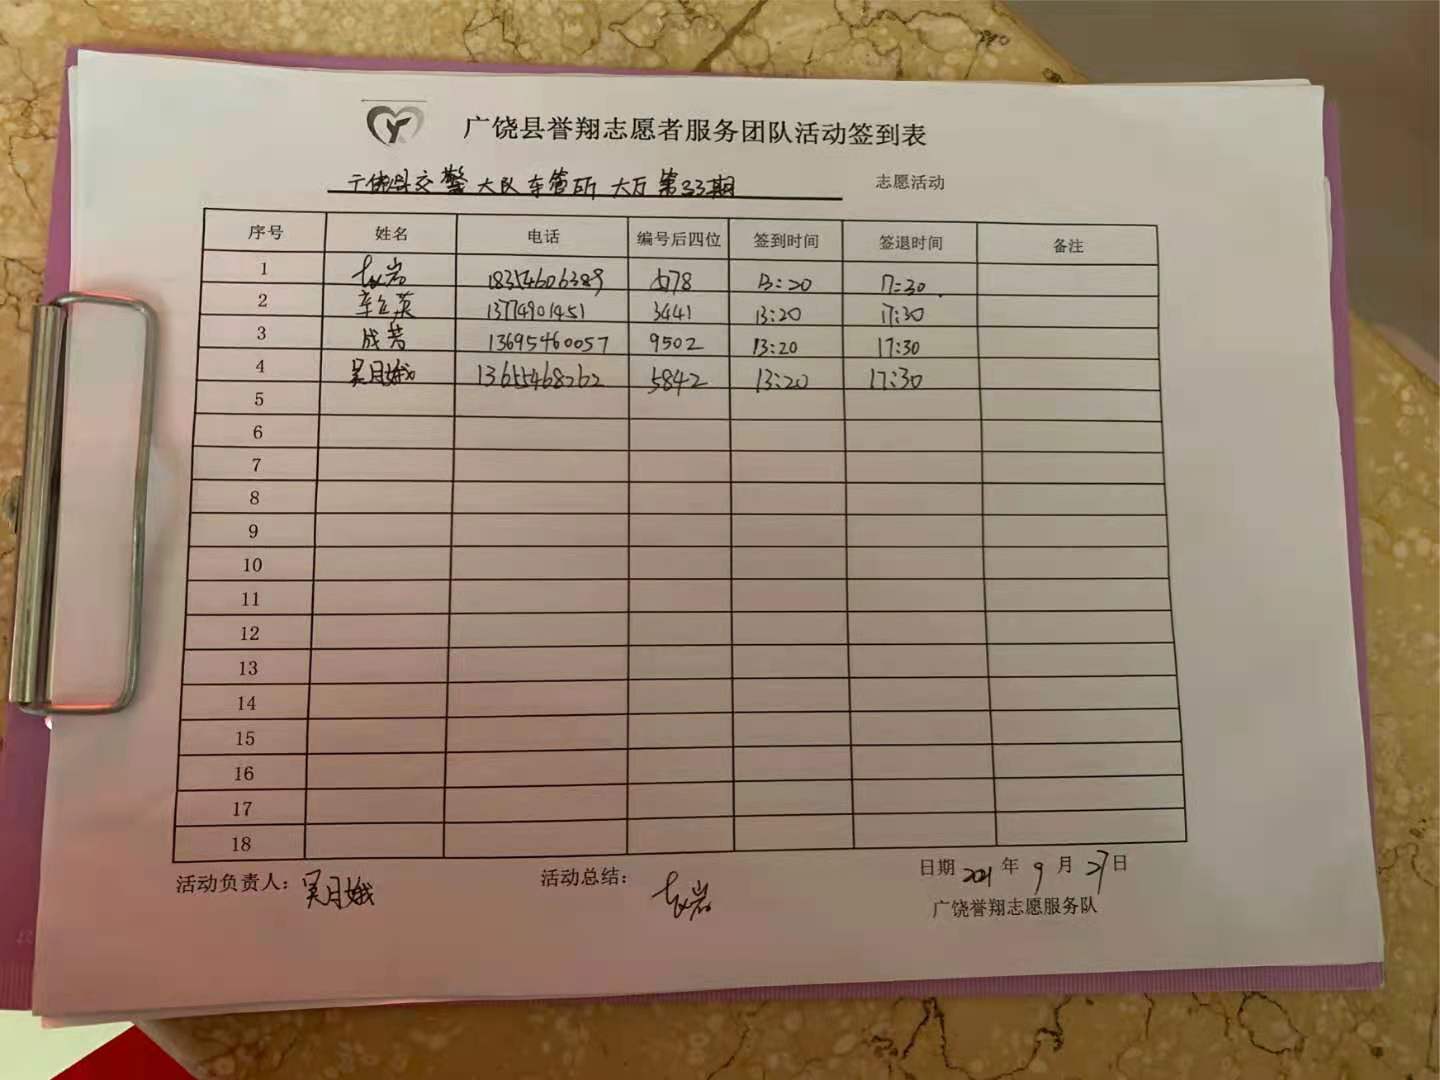 广饶县誉翔志愿者服务团队活动签到表
广饶县交警大队车管所大厅第33期 志愿活动
序号 姓名 电话 编号后四位 签到时间 签退时间 备注
1 岩 18354606389 13:20 17:30
2 辛立英 13774901451 3441 13:20 17:30
3 成芳 13695460057 9502 13:20 17:30
4 吴月娥 13655468262 5842 13:20 17:30
5
6
7
8
9
10
11
12
13
14
15
16
17
18
活动负责人：吴月娥 活动总结： 岩 日期 2021 年 9 月 27 日
广饶誉翔志愿服务队